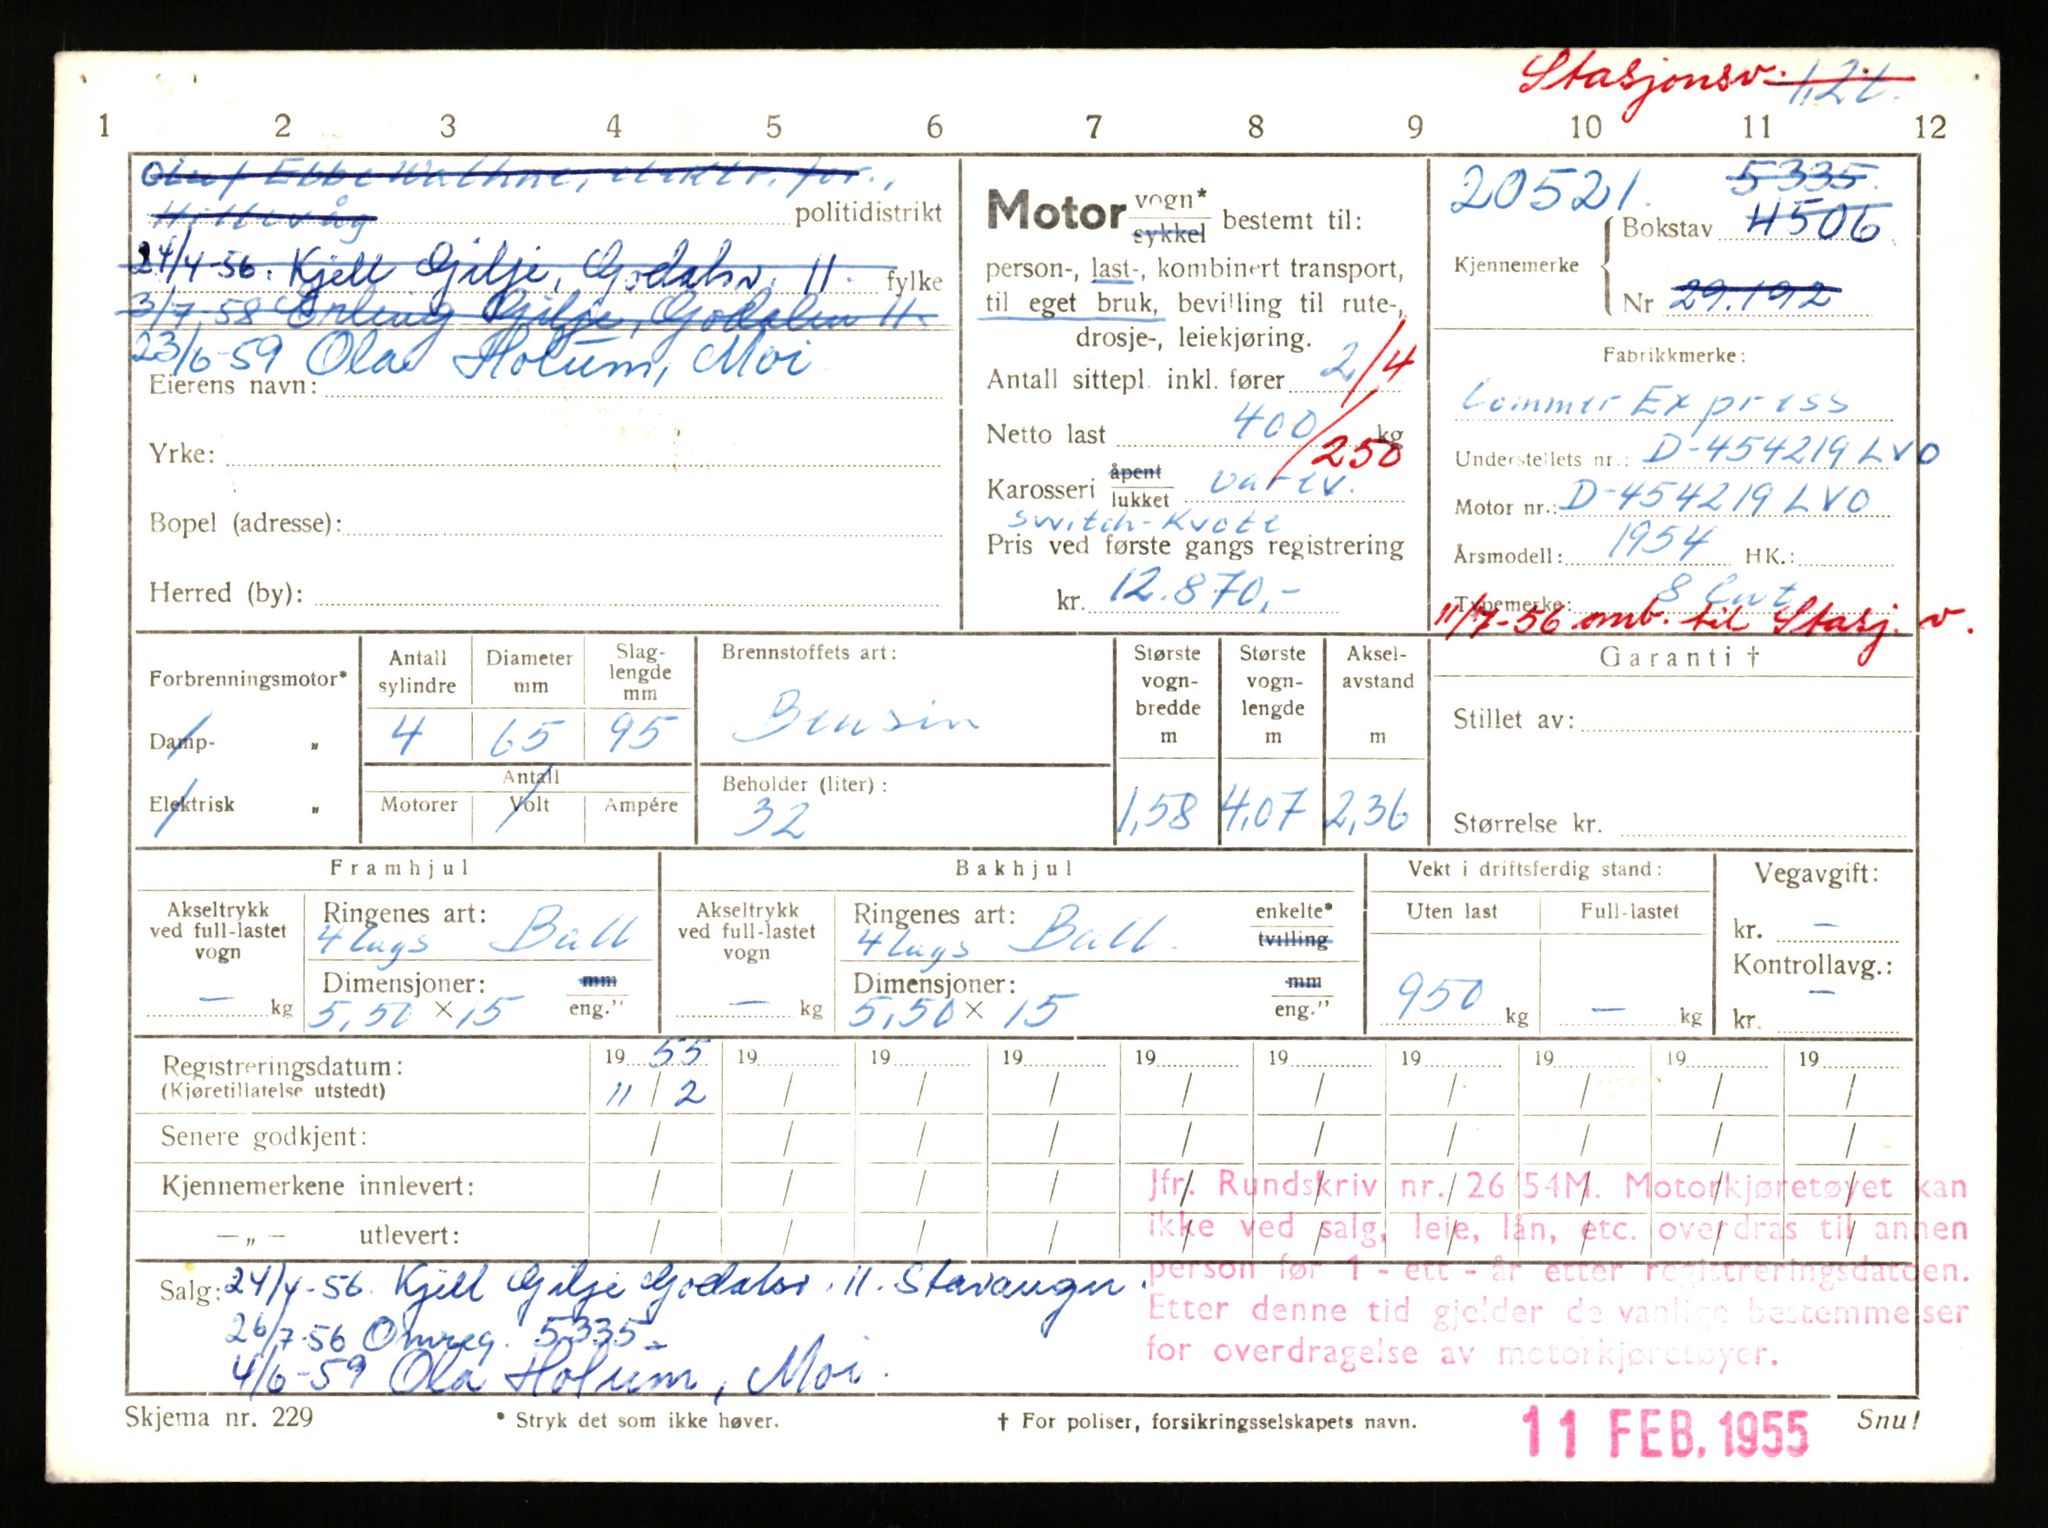 Stasjonsv. 1,2t.
1 2 3 4 5 6 7 8 9 10 11 12
Olaf Ebbe Wathne, elektr. for.,
Hillevåg politidistrikt
24/4-56. Kjell Gilje, Godalsv. 11. fylke
3/7.58 Erling Gilje, Godalsv 11.
23/6-59 Ola Holum, Moi
Eierens navn:
Yrke:
Bopel (adresse):
Herred (by):
Motor vogn* sykkel bestemt til:
person-, last-, kombinert transport,
til eget bruk, bevilling til rute-,
drosje-, leiekjøring.
Antall sittepl. inkl. fører 2/4
Netto last 400/250 kg
Karosseri åpent lukket varev.
Switch-Kvote
Pris ved første gangs registrering
kr. 12.870,-
20521. 5335.
Bokstav 4506
Kjennemerke
Nr 29.192
Fabrikkmerke:
Commer Express
Understellets nr.: D-454219 LVO
Motor nr.: D-454219 LVO
Årsmodell: 1954 HK.:
Typemerke: 8 Cwt
11/7-56 omb. til Stasj. v.
Forbrenningsmotor*
Damp- „
Elektrisk „
Antall sylindre Diameter mm Slag-lengde mm
4 65 95
Antall
Motorer Volt Ampére
Brennstoffets art:
Bensin
Beholder (liter):
32
Største vogn-bredde m Største vogn-lengde m Aksel-avstand m
1,58 4,07 2,36
Garanti †
Stillet av:
Størrelse kr.
Framhjul
Akseltrykk ved full-lastet vogn
— kg
Ringenes art:
4 lags Ball
Dimensjoner: mm
5,50 × 15 eng."
Bakhjul
Akseltrykk ved full-lastet vogn
— kg
Ringenes art: enkelte*
4 lags Ball. tvilling
Dimensjoner: mm
5,50 × 15 eng."
Vekt i driftsferdig stand:
Uten last Full-lastet
950 kg — kg
Vegavgift:
kr. —
Kontrollavg.:
kr. —
Registreringsdatum: 19 55 19 19 19 19 19 19 19 19 19
(Kjøretillatelse utstedt) 11/2 / / / / / / / / /
Senere godkjent: / / / / / / / / / /
Kjennemerkene innlevert: / / / / / / / / / /
— „ — utlevert: / / / / / / / / / /
Jfr. Rundskriv nr. 26/54M. Motorkjøretøyet kan
ikke ved salg, leie, lån, etc. overdras til annen
person før 1 - ett - år etter registreringsdatoen.
Etter denne tid gjelder de vanlige bestemmelser
for overdragelse av motorkjøretøyer.
Salg: 24/4-56. Kjell Gilje Godalsv. 11. Stavanger.
26/7-56 Omreg. 5335.
4/6-59 Ola Holum, Moi.
Skjema nr. 229 * Stryk det som ikke høver. † For poliser, forsikringsselskapets navn. 11 FEB. 1955 Snu!